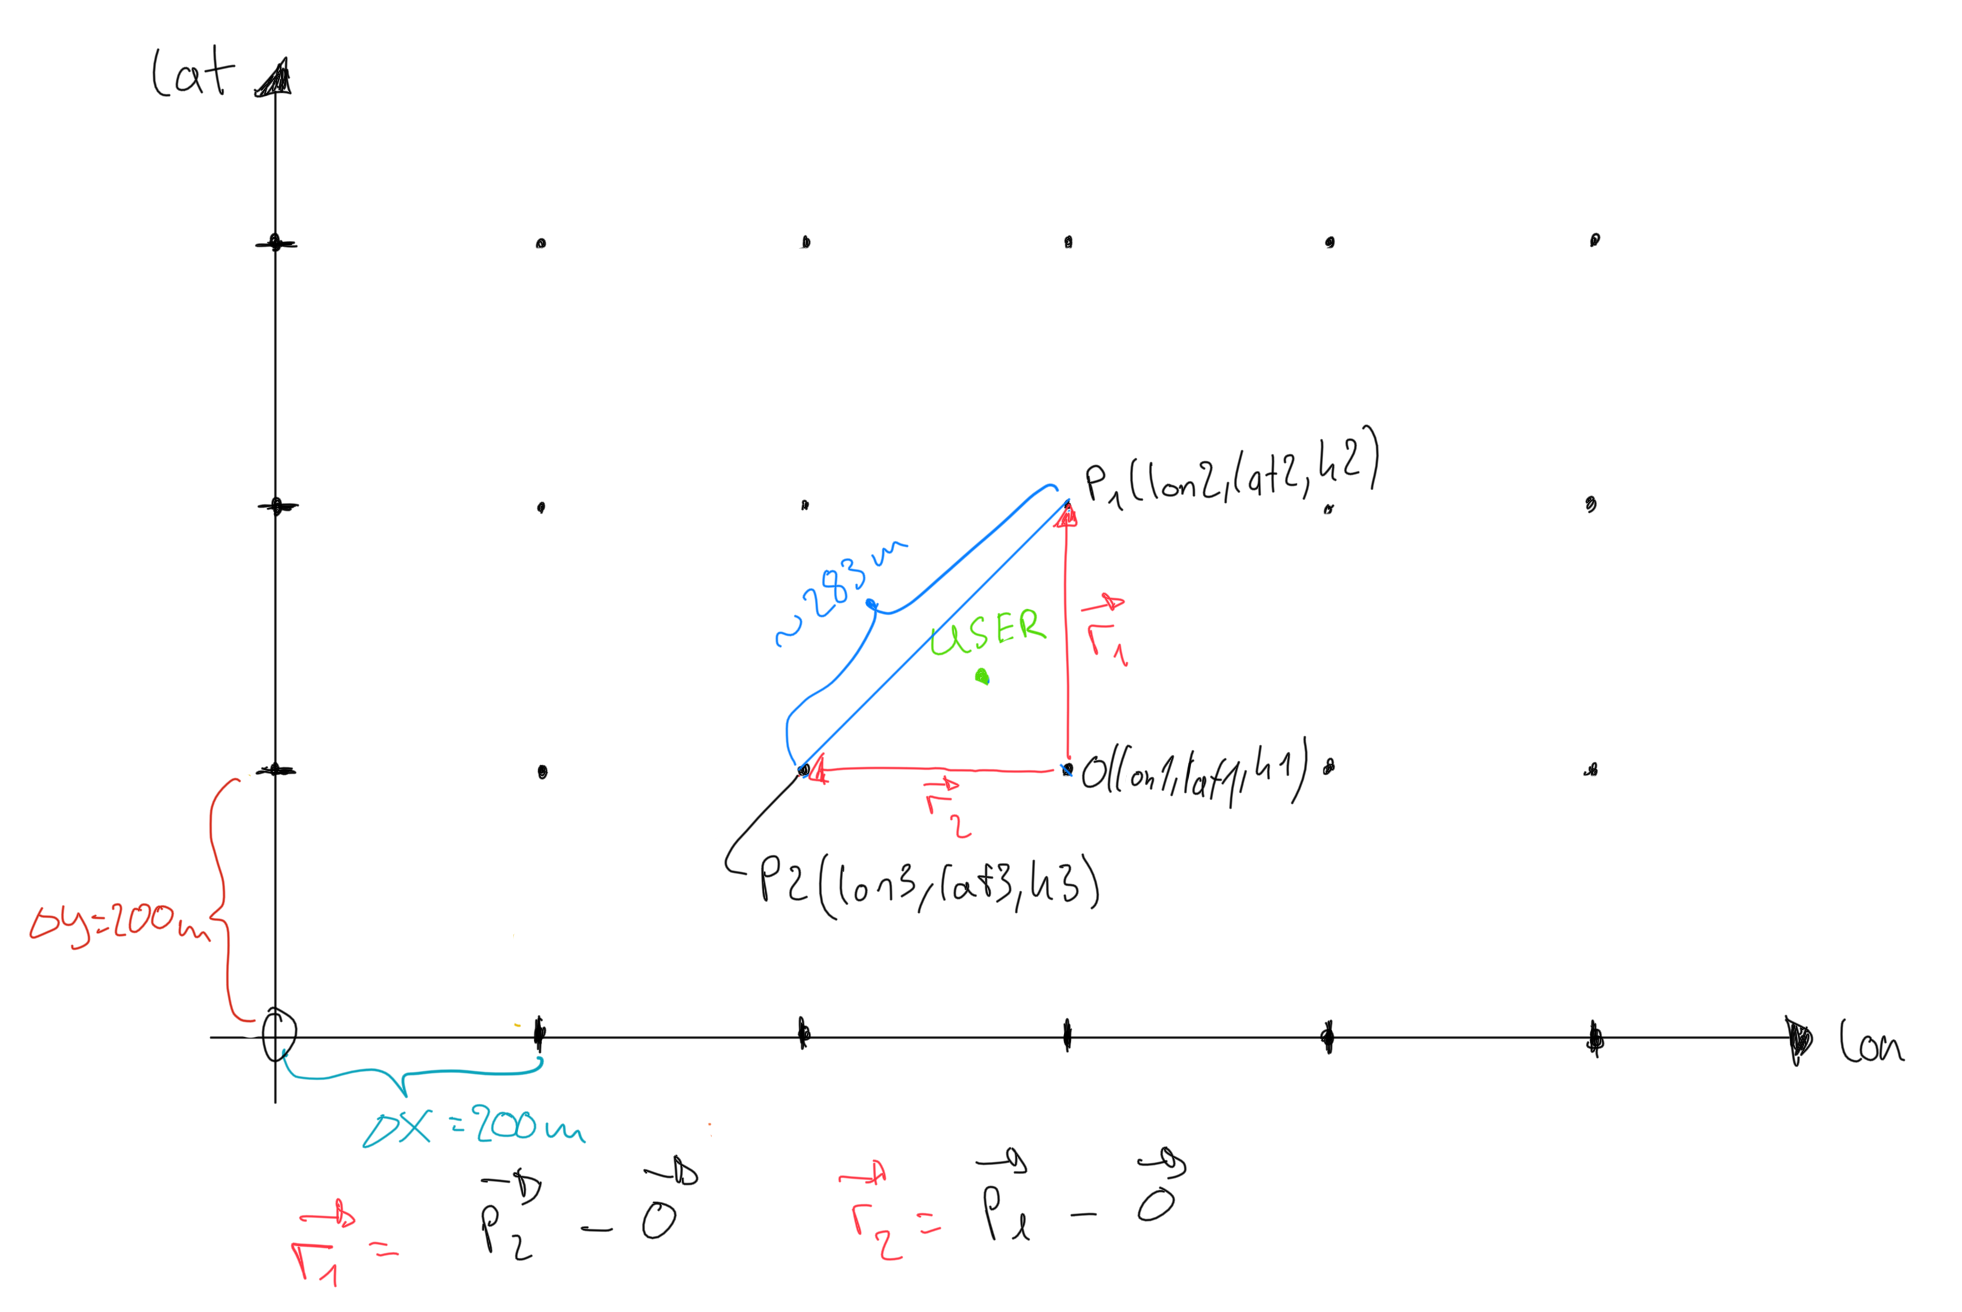 lat
P₁(lon2,lat2,h2)
~283m
USER
r⃗₁
O(lon1,lat1,h1)
r⃗₂
P2(lon3,lat3,h3)
Δy=200m
0
lon
Δx=200m
r⃗₁ = P⃗₂ - O⃗
r⃗₂ = P⃗₁ - O⃗